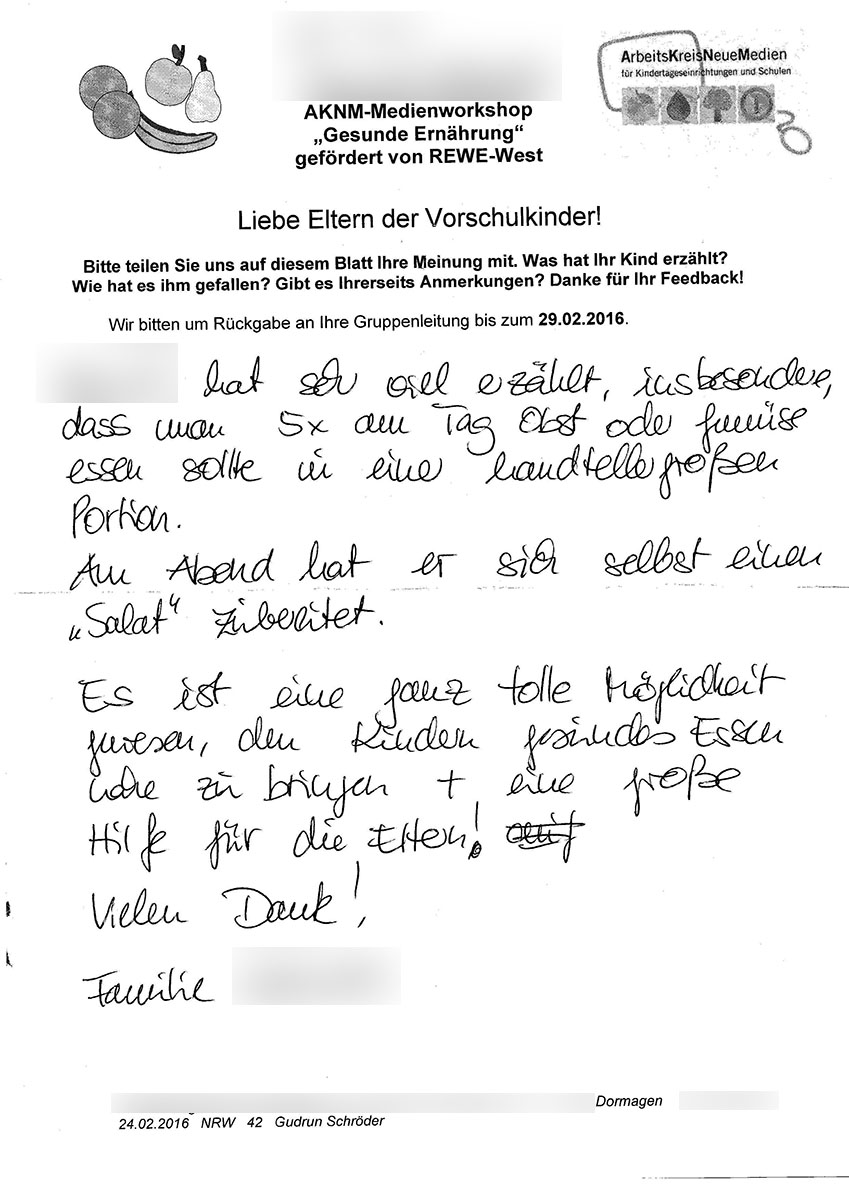 ArbeitsKreisNeueMedien
für Kindertageseinrichtungen und Schulen
AKNM-Medienworkshop
„Gesunde Ernährung“
gefördert von REWE-West
Liebe Eltern der Vorschulkinder!
Bitte teilen Sie uns auf diesem Blatt Ihre Meinung mit. Was hat Ihr Kind erzählt?
Wie hat es ihm gefallen? Gibt es Ihrerseits Anmerkungen? Danke für Ihr Feedback!
Wir bitten um Rückgabe an Ihre Gruppenleitung bis zum 29.02.2016.
hat sehr viel erzählt, insbesondere,
dass man 5x am Tag Obst oder Gemüse
essen sollte in einer handtellergroßen
Portion.
Am Abend hat er sich selbst einen
„Salat“ zubereitet.
Es ist eine ganz tolle Möglichkeit
gewesen, den Kindern gesundes Essen
nahe zu bringen + eine große
Hilfe für die Eltern!
Vielen Dank!
Familie
Dormagen
24.02.2016 NRW 42 Gudrun Schröder